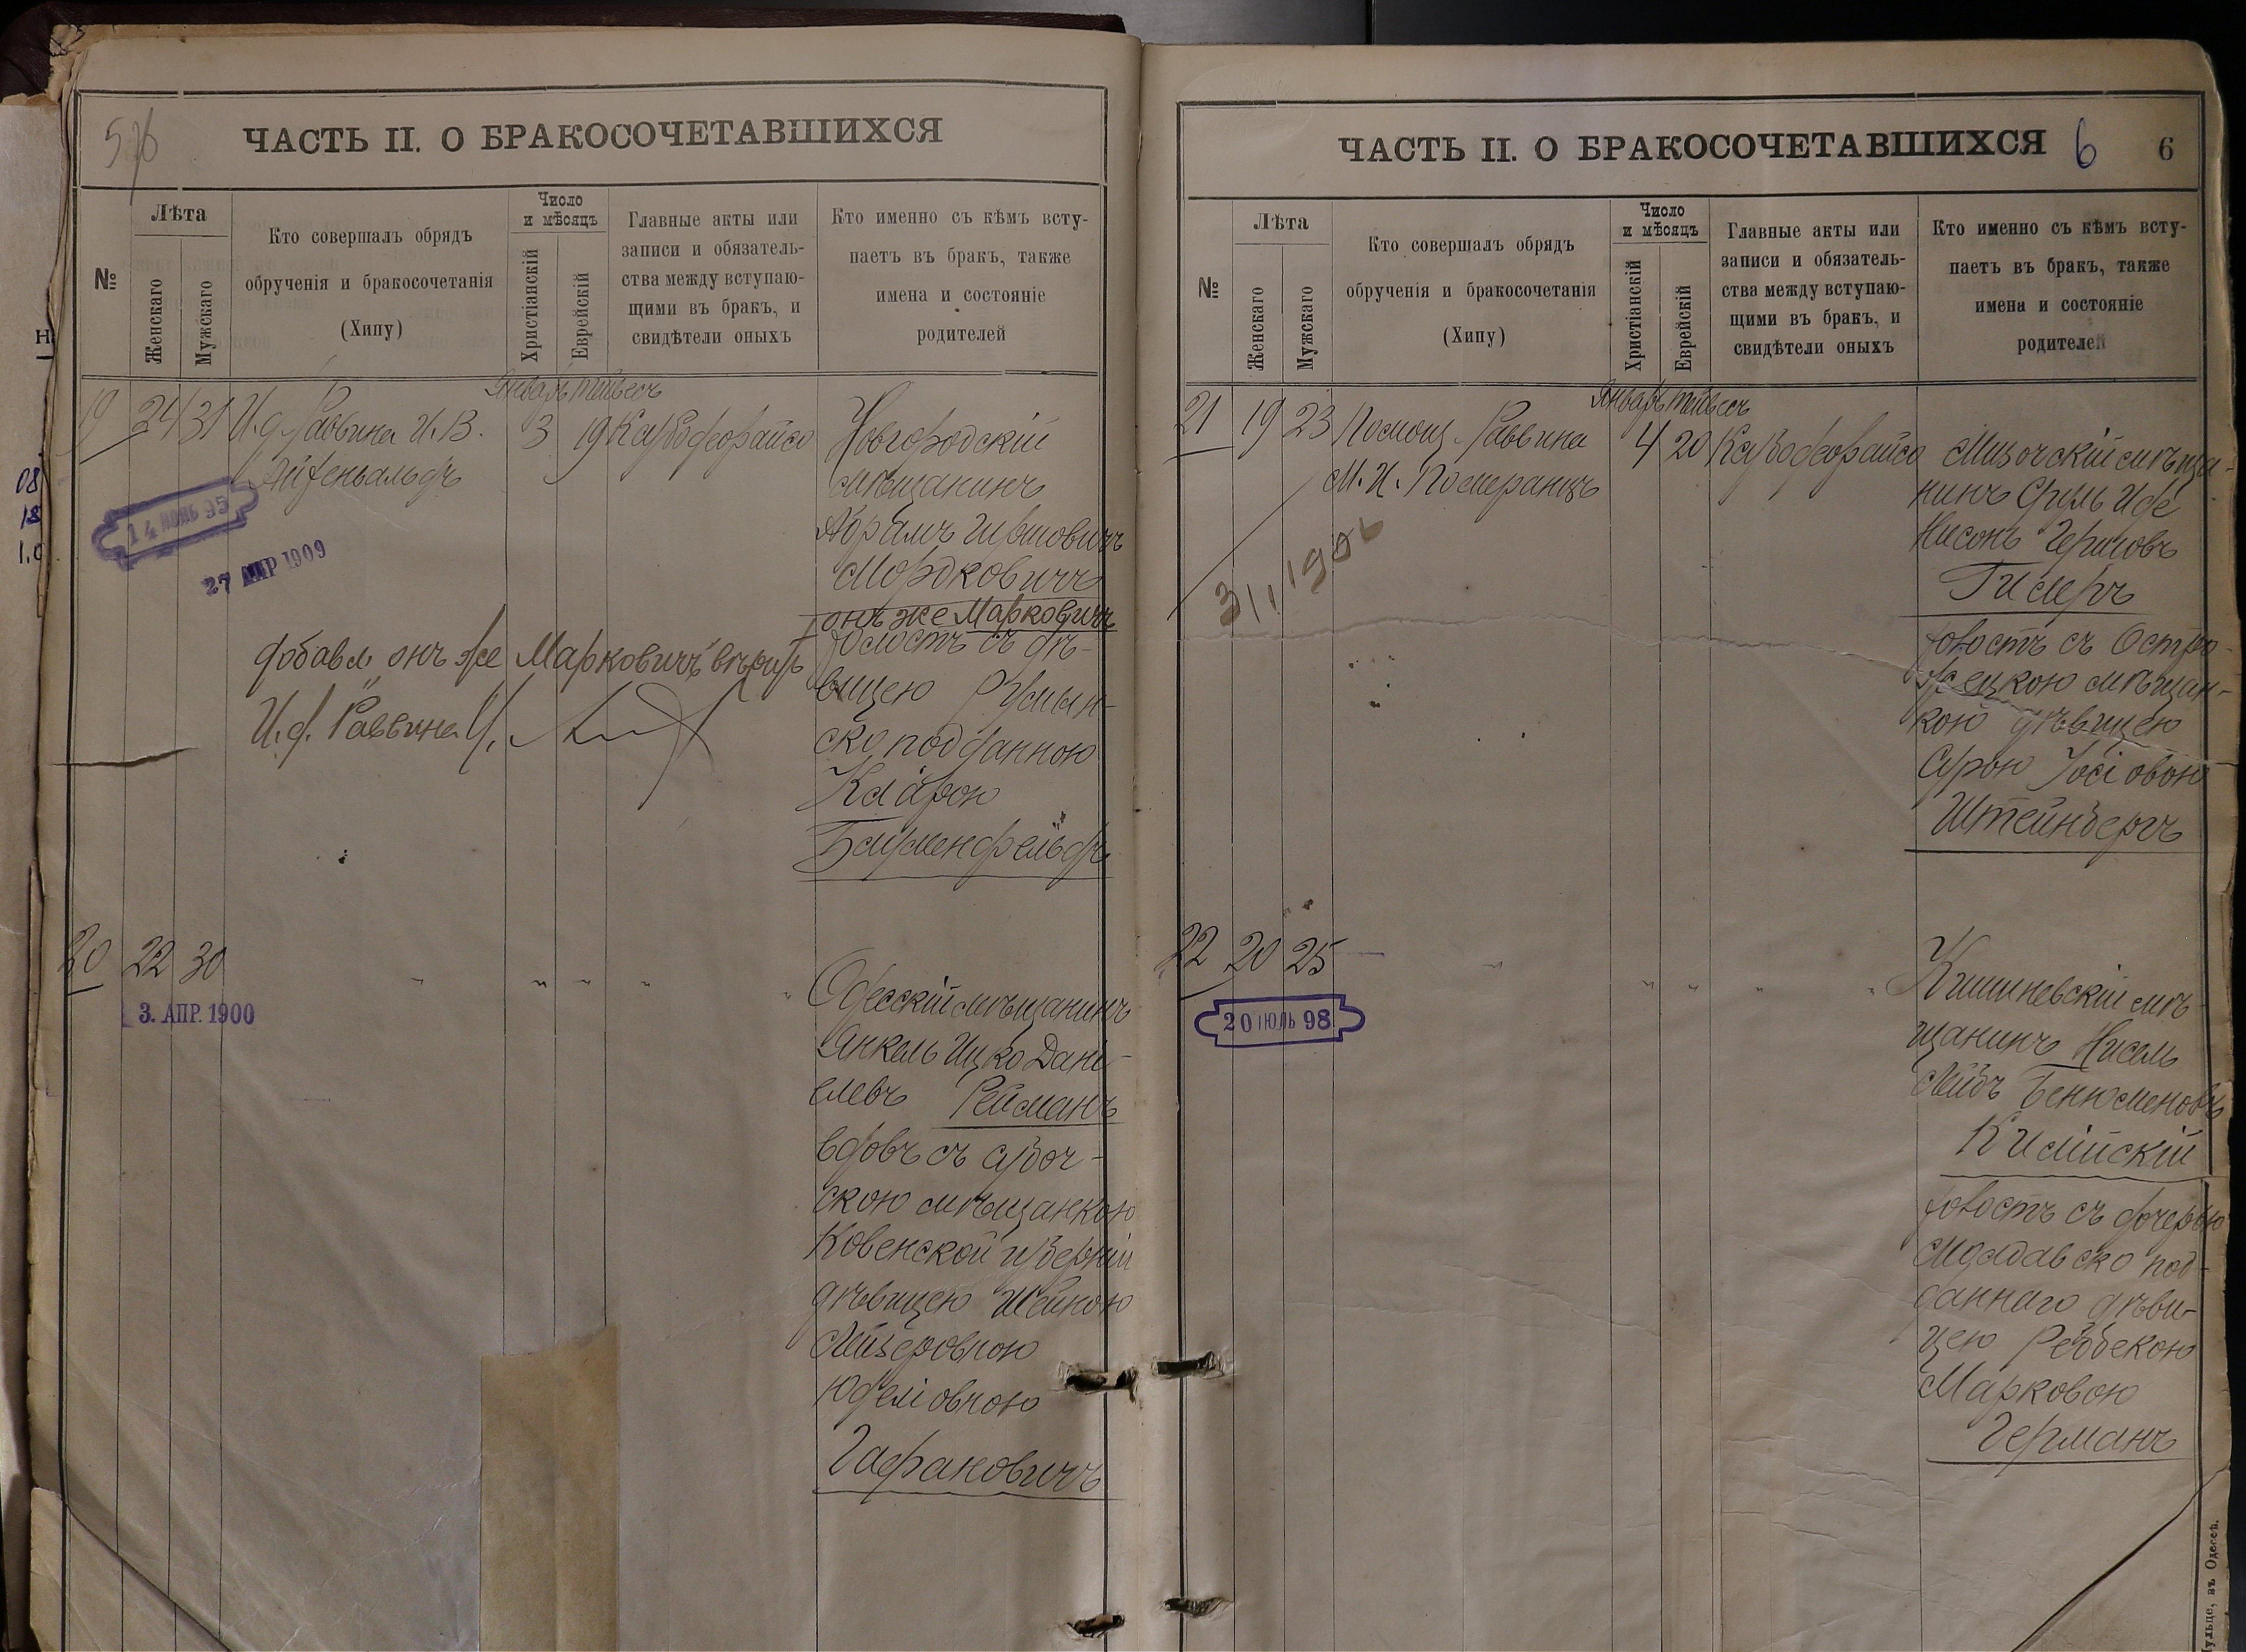 576
ЧАСТЬ II. О БРАКОСОЧЕТАВШИХСЯ
№
Лѣта
Женскаго
Мужскаго
Кто совершалъ обрядъ
обрученія и бракосочетанія
(Хипу)
Число
и мѣсяцъ
Христіанскій
Еврейскій
Главные акты или
записи и обязатель-
ства между вступаю-
щими въ бракъ, и
свидѣтели оныхъ
Кто именно съ кѣмъ всту-
паетъ въ бракъ, также
имена и состояніе
родителей
Январь Тейвесъ
19 24 31 И.д. Раввина И. В. 3 19
14 ИЮЛЬ 95
27 АПР 1909
Новгородскій
мѣщанинъ
Абрамъ Гершовичъ
Мордковичъ
онъ же Марковичъ
холостъ съ дѣ-
вицею Румын-
ско подданною
Кларою
Блуменфельдъ
добавл. онъ же Марковичъ вѣрить
И. д. Раввина
20 22 30 " " " " "
3. АПР. 1900
Одесскій мѣщанинъ
Янкель Ицко Дані-
елевъ Рейсманъ
вдовъ съ
скою мѣщанкою
Ковенской губерніи
дѣвицею Шейною
Лейзеровною
Юделіовною
08
18
ЧАСТЬ II. О БРАКОСОЧЕТАВШИХСЯ 6 6
№
Лѣта
Женскаго
Мужскаго
Кто совершалъ обрядъ
обрученія и бракосочетанія
(Хипу)
Число
и мѣсяцъ
Христіанскій
Еврейскій
Главные акты или
записи и обязатель-
ства между вступаю-
щими въ бракъ, и
свидѣтели оныхъ
Кто именно съ кѣмъ всту-
паетъ въ бракъ, также
имена и состояніе
родителей
Январь Тейвесъ
21 19 23 Помощ. Раввина 4 20
М. И. Померанцъ
Мизочскій мѣща-
нинъ Сруль Иде
Нисонъ Гершовъ
Гислеръ
холостъ съ Остро-
жецкою мѣщан-
кою дѣвицею
Сурою Іосіовою
Штейнбергъ
22 20 25 " " " " "
20 ІЮЛЬ 98
Кишиневскій мѣ-
щанинъ Нисель
Лейбъ Беньюменовъ
Килійскій
холостъ съ дочерью
Молдавско под-
даннаго дѣви-
цею Реббекою
Марковою
Германъ
въ Одессѣ.